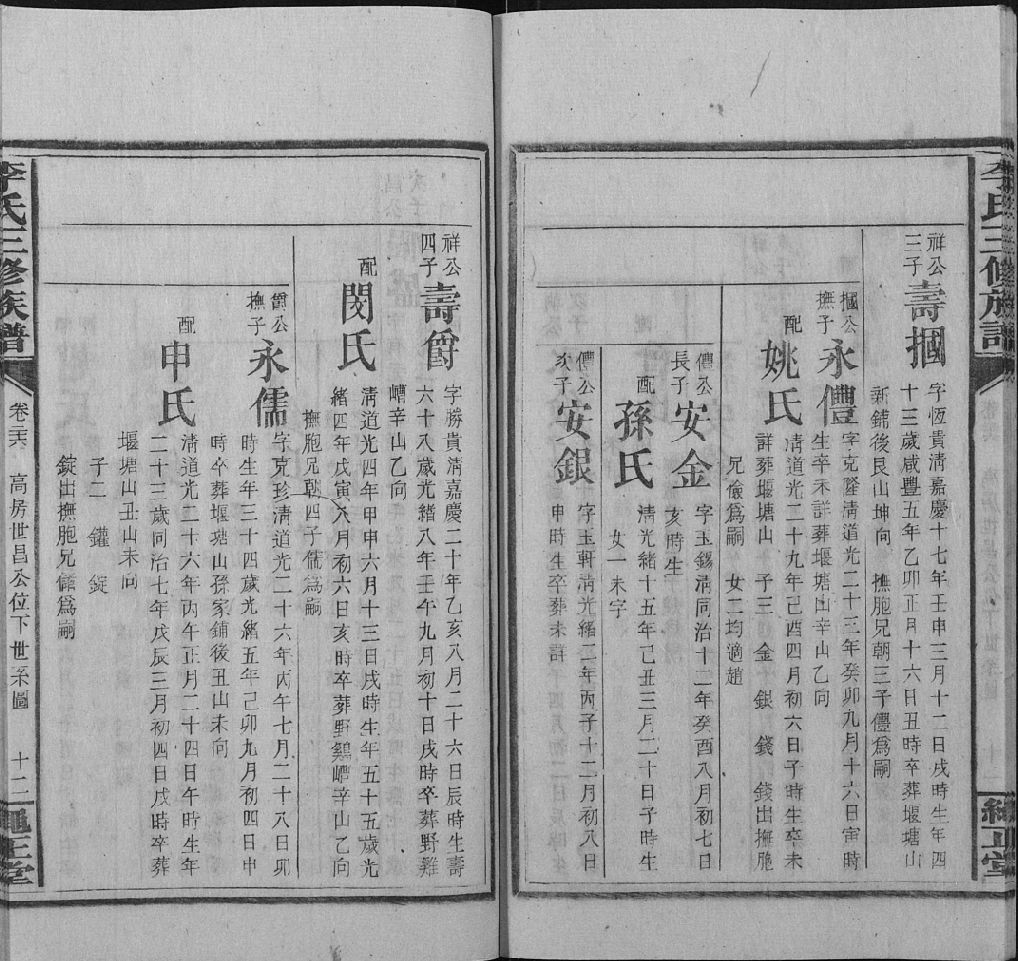 李氏三修族譜
祥公
三子
壽摑
字恆貴清嘉慶十七年壬申三月十二日戌時生年四
十三歲咸豐五年乙卯正月十六日丑時卒葬堰塘山
新鋪後艮山坤向 撫胞兄朝三子僼爲嗣
摑公
撫子
永僼
字克隆清道光二十三年癸卯九月十六日寅時
生卒未詳葬堰塘山辛山乙向
配
姚氏
清道光二十九年己酉四月初六日子時生卒未
詳葬堰塘山 子三 金 銀 錢 錢出撫胞
兄儉爲嗣 女二均適趙
僼公
長子
安金
字玉錫清同治十二年癸酉八月初七日
亥時生
配
孫氏
清光緒十五年己丑三月二十日子時生
女一未字
僼公
次子
安銀
字玉軒清光緒二年丙子十二月初八日
申時生卒葬未詳
祥公
四子
壽爵
字勝貴清嘉慶二十年乙亥八月二十六日辰時生壽
六十八歲光緒八年壬午九月初十日戌時卒葬野雞
嶆辛山乙向
配
閔氏
清道光四年甲申六月十三日戌時生年五十五歲光
緒四年戊寅八月初六日亥時卒葬野鷄嶆辛山乙向
撫胞兄朝四子儒爲嗣
爵公
撫子
永儒
字克珍清道光二十六年丙午七月二十八日卯
時生年三十四歲光緒五年己卯九月初四日申
時卒葬堰塘山孫家鋪後丑山未向
配
申氏
清道光二十六年丙午正月二十四日午時生年
二十三歲同治七年戊辰三月初四日戌時卒葬
堰塘山丑山未向
子二 鑵 錠
錠出撫胞兄僼爲嗣
李氏三修族譜
卷三六 高房世昌公位下世系圖
十二